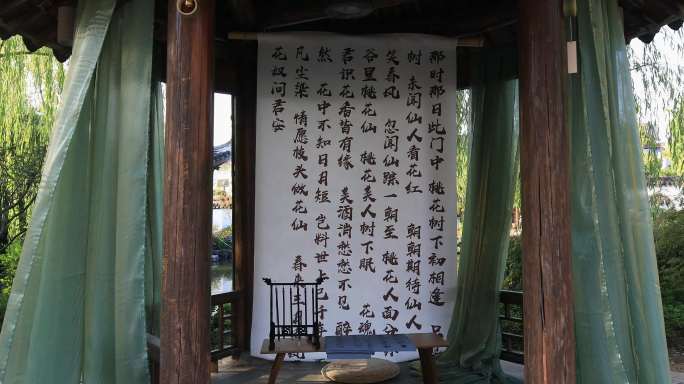 那时那日此门中 桃花树下初相逢 只
树 未闻仙人看花红 朝朝期待仙人
笑春风 忽闻仙踪一朝至 桃花人面
谷里桃花仙 桃花美人树下眠 花魂
君识花香皆有缘 美酒消愁愁不见 醉
然 花中不知日月短 岂料世上已千
凡尘染 情愿枝头做花仙 春来
花奴问君安